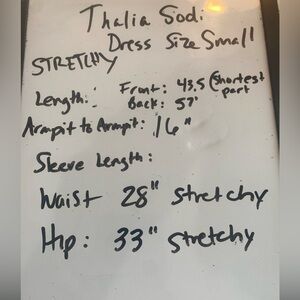 Thalia Sodi
Dress Size Small
STRETCHY
Length: Front: 43.5 (Shortest part
Back: 57"
Armpit to Armpit: 16"
Sleeve Length:
Waist 28" stretchy
Hip: 33" stretchy